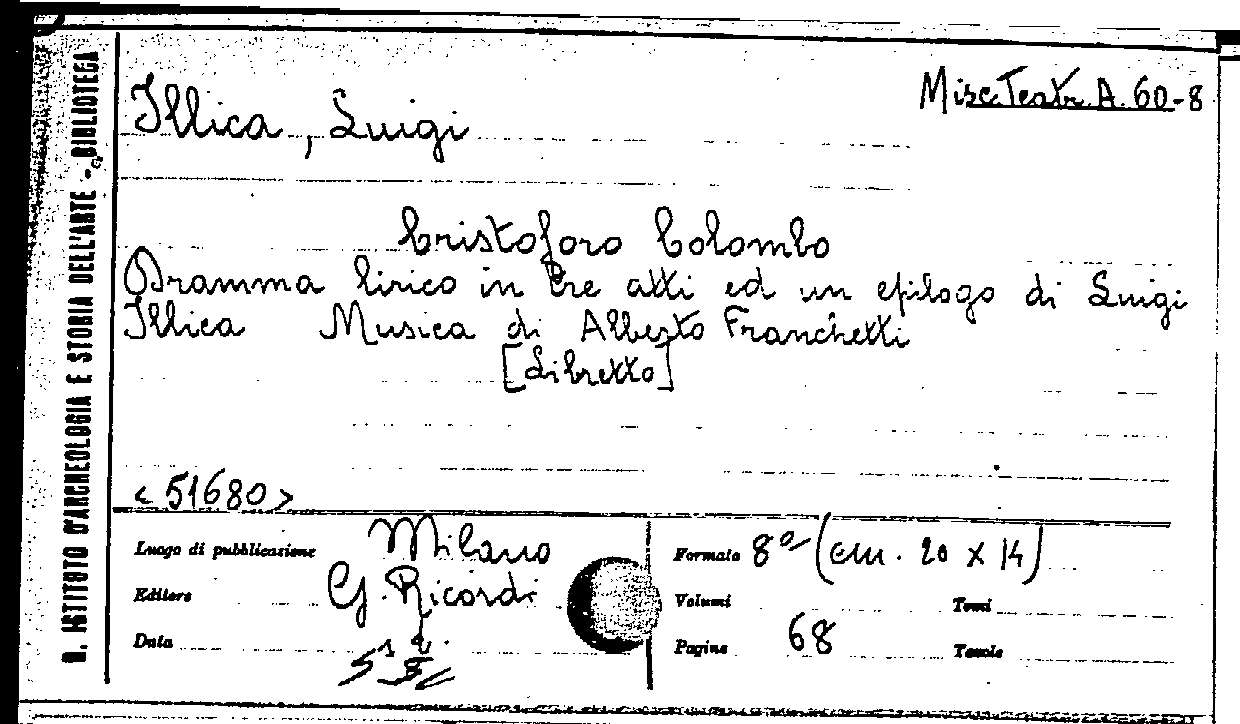 R. ISTITUTO D'ARCHEOLOGIA E STORIA DELL'ARTE - BIBLIOTECA
Misc. Teatr. A. 60-8
Illica, Luigi
Cristoforo Colombo
Dramma lirico in tre atti ed un epilogo di Luigi
Illica Musica di Alberto Franchetti
[Libretto]
<51680>
Luogo di pubblicazione Milano
Editore G. Ricordi
Data
Formato 8° (cm. 20 x 14)
Volumi Tomi
Pagine 68 Tavole